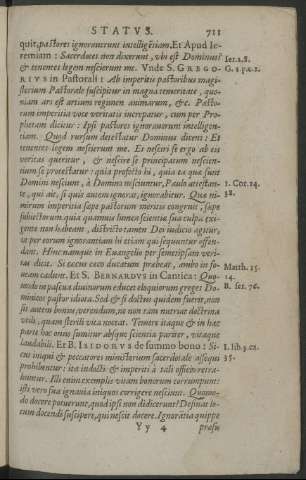 STATVS. 711
quit, pastores ignorauerunt intelligētiam. Et Apud Ie-
remiam: Sacerdotes non dixerunt, vbi est Dominus? Ier. 2. 8.
& tenentes legem nescierunt me. Vnde S. GREGO- G. 1. p. c. 1.
RIVS in Pastorali: Ab imperitis pastoribus magi-
sterium Pastorale suscipitur in magna temeritate, quo-
niam ars est artium regimen animarum, &c. Pasto-
rum imperitia voce veritatis increpatur, cum per Pro-
phetam dicitur: Ipsi pastores ignorauerunt intelligen-
tiam. Quos rursum detestatur Dominus dicens: Et
tenentes legem nescierunt me. Et nesciri se ergo ab eis
veritas queritur, & nescire se principatum nescien-
tium se protestatur: quia profecto hi, qui ea quæ sunt
Domini nesciunt, à Domino nesciuntur, Paulo attestan- 1. Cor. 14.
te, qui ait, si quis autem ignorat, ignorabitur. Quæ ni- 38.
mirum imperitia sæpe pastorum meritis congruit, sæpe
subiectorum. quia quamuis lumen scientiæ sua culpa exi-
gente non habeant, districto tamen Dei iudicio agitur,
vt per eorum ignorantiam hi etiam qui sequuntur offen-
dant. Hinc namque in Euangelio per semetipsam veri-
tas dicit. Si cæcus cæco ducatum præbeat, ambo in fo- Matth. 15.
ueam cadunt. Et S. BERNARDVS in Cantica: Quo- 14.
modo in pascua diuinorum educet eloquiorum greges Do- B. ser. 76.
minicos pastor idiota. Sed & si doctus quidem fuerit, non
sit autem bonus, verendum, ne non tam nutriat doctrina
vberi, quam sterili vita noceat. Temere itaque & in hac
parte hoc onus sumitur absque scientia pariter, vitaque
laudabili. Et B. ISIDORVS de summo bono: Si- I. lib. 3. ca.
cut iniqui & peccatores ministerium sacerdotale assequi 35.
prohibentur: ita indocti & imperiti à tali officio retra-
huntur. Illi enim exemplis vitam bonorum corrumpunt:
isti vero sua ignauia iniquos corrigere nesciunt. Quomo-
do docere poterunt, quod ipsi non didicerunt? Desinat lo-
cum docendi suscipere, qui nescit docere. Ignorātia quippe
Y y 4 præsu